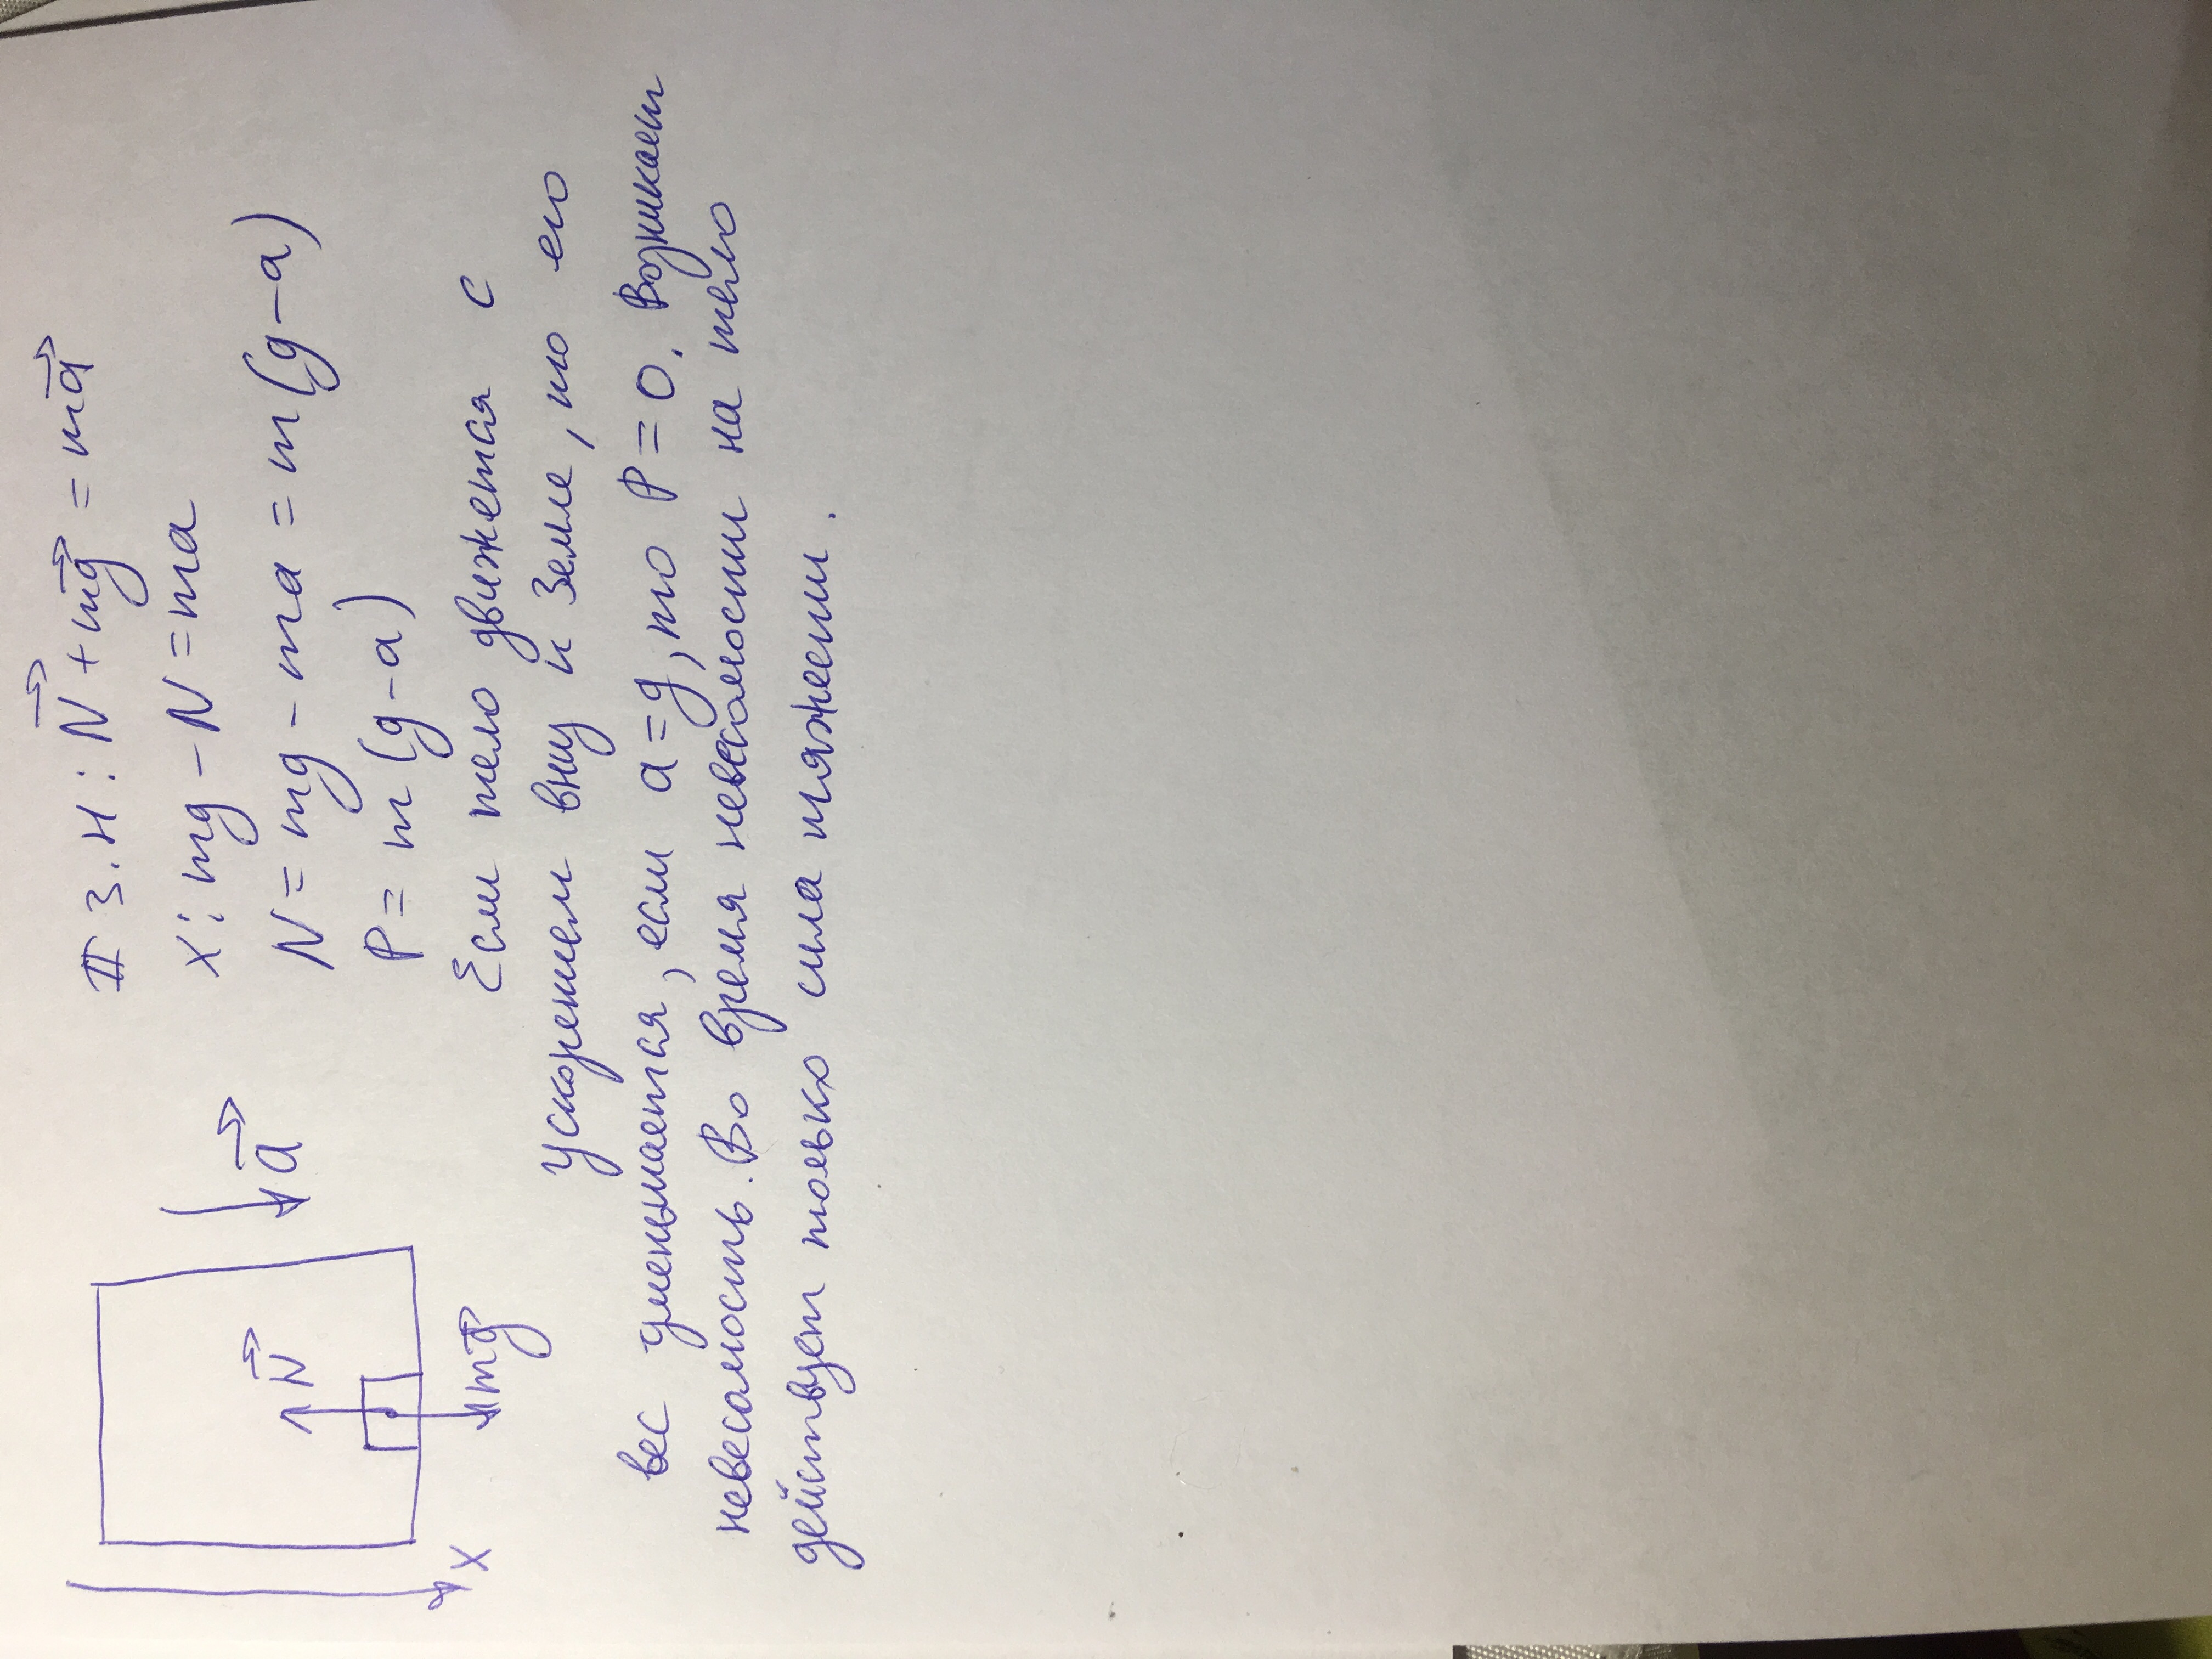 II З.Н: N⃗ + mg⃗ = ma⃗
X: mg - N = ma
N = mg - ma = m(g-a)
P = m(g-a)
Если тело движется с
ускорением вниз к Земле, то его
вес уменьшается, если a = g, то P = 0. Возникает
невесомость. Во время невесомости на тело
действует только сила тяжести.
N⃗
a⃗
mg⃗
X